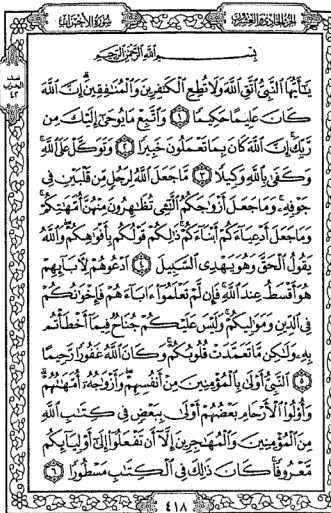 الجزء الحادي والعشرون
سورة الأحزاب
بِسْمِ اللَّهِ الرَّحْمَٰنِ الرَّحِيمِ
يَـٰٓأَيُّهَا ٱلنَّبِىُّ ٱتَّقِ ٱللَّهَ وَلَا تُطِعِ ٱلْكَـٰفِرِينَ وَٱلْمُنَـٰفِقِينَ ۗ إِنَّ ٱللَّهَ
كَانَ عَلِيمًا حَكِيمًا ١ وَٱتَّبِعْ مَا يُوحَىٰٓ إِلَيْكَ مِن
رَّبِّكَ ۚ إِنَّ ٱللَّهَ كَانَ بِمَا تَعْمَلُونَ خَبِيرًا ٢ وَتَوَكَّلْ عَلَى ٱللَّهِ ۚ
وَكَفَىٰ بِٱللَّهِ وَكِيلًا ٣ مَّا جَعَلَ ٱللَّهُ لِرَجُلٍ مِّن قَلْبَيْنِ فِى
جَوْفِهِۦ ۚ وَمَا جَعَلَ أَزْوَٰجَكُمُ ٱلَّـٰٓـِٔى تُظَـٰهِرُونَ مِنْهُنَّ أُمَّهَـٰتِكُمْ ۚ
وَمَا جَعَلَ أَدْعِيَآءَكُمْ أَبْنَآءَكُمْ ۚ ذَٰلِكُمْ قَوْلُكُم بِأَفْوَٰهِكُمْ ۖ وَٱللَّهُ
يَقُولُ ٱلْحَقَّ وَهُوَ يَهْدِى ٱلسَّبِيلَ ٤ ٱدْعُوهُمْ لِـَٔابَآئِهِمْ
هُوَ أَقْسَطُ عِندَ ٱللَّهِ ۚ فَإِن لَّمْ تَعْلَمُوٓا۟ ءَابَآءَهُمْ فَإِخْوَٰنُكُمْ
فِى ٱلدِّينِ وَمَوَٰلِيكُمْ ۚ وَلَيْسَ عَلَيْكُمْ جُنَاحٌ فِيمَآ أَخْطَأْتُم
بِهِۦ وَلَـٰكِن مَّا تَعَمَّدَتْ قُلُوبُكُمْ ۚ وَكَانَ ٱللَّهُ غَفُورًا رَّحِيمًا
٥ ٱلنَّبِىُّ أَوْلَىٰ بِٱلْمُؤْمِنِينَ مِنْ أَنفُسِهِمْ ۖ وَأَزْوَٰجُهُۥٓ أُمَّهَـٰتُهُمْ ۗ
وَأُو۟لُوا۟ ٱلْأَرْحَامِ بَعْضُهُمْ أَوْلَىٰ بِبَعْضٍ فِى كِتَـٰبِ ٱللَّهِ
مِنَ ٱلْمُؤْمِنِينَ وَٱلْمُهَـٰجِرِينَ إِلَّآ أَن تَفْعَلُوٓا۟ إِلَىٰٓ أَوْلِيَآئِكُم
مَّعْرُوفًا ۚ كَانَ ذَٰلِكَ فِى ٱلْكِتَـٰبِ مَسْطُورًا ٦
نصف
الحزب
٤٢
٤١٨